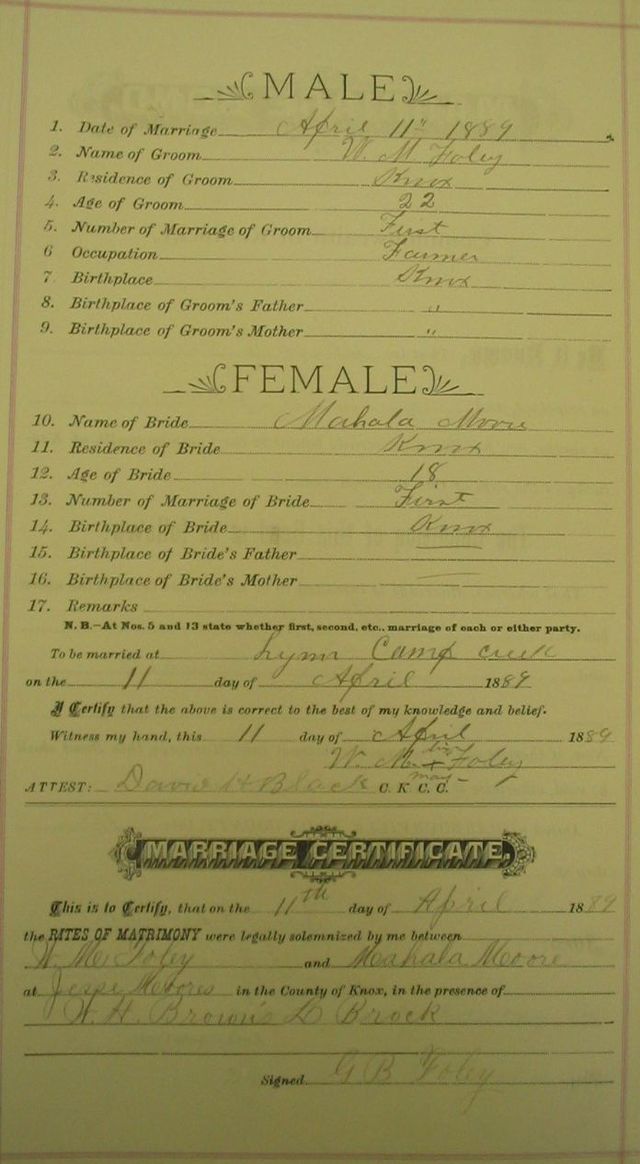 MALE
1. Date of Marriage April 11" 1889
2. Name of Groom W. M Foley
3. Residence of Groom Knox
4. Age of Groom 22
5. Number of Marriage of Groom First
6 Occupation Farmer
7 Birthplace Knox
8. Birthplace of Groom's Father "
9. Birthplace of Groom's Mother "
FEMALE
10. Name of Bride Mahala Moore
11. Residence of Bride Knox
12. Age of Bride 18
13. Number of Marriage of Bride First
14. Birthplace of Bride Knox
15. Birthplace of Bride's Father —
16. Birthplace of Bride's Mother —
17. Remarks
N. B.—At Nos. 5 and 13 state whether first, second, etc., marriage of each or either party.
To be married at Lynn Camp Creek
on the 11 day of April 1889
I Certify that the above is correct to the best of my knowledge and belief.
Witness my hand, this 11 day of April 1889
his
W. M. + Foley
mark
ATTEST: David H Black C. K. C. C.
MARRIAGE CERTIFICATE.
This is to Certify, that on the 11th day of April 1889
the RITES OF MATRIMONY were legally solemnized by me between
W. M. Foley and Mahala Moore
at Jesse Moores in the County of Knox, in the presence of
W. H. Brown & D Brock
Signed G B Foley